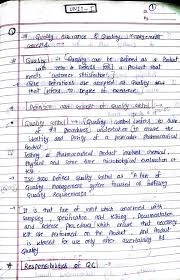 UNIT-I
①
Quality Assurance & Quality management
concepts
Quality : Quality can be defined as a Product
with zero defects for a Product that
meets customer satisfaction.
These Definitions are accepted as Quality now
that refers to Degree of
Definition and concept of Quality control
Quality control : Quality control refers to
of the procedures undertaken to ensure the
identity and Purity of a particular Pharmaceutical
Product.
Testing of Pharmaceutical Product involves chemical,
Physical and some time microbiological evaluation of
ISO 9000 defines quality control as "A Part of
Quality management system focused on fulfilling
Quality Requirements"
It is that Part of GMP which concerned with
Sampling, Specification and testing, Documentation
and Release Procedures which ensure that necessary
test are performed on the Product and Product
is released for use only after ascertaining its
Quality.
Responsibilities of QC